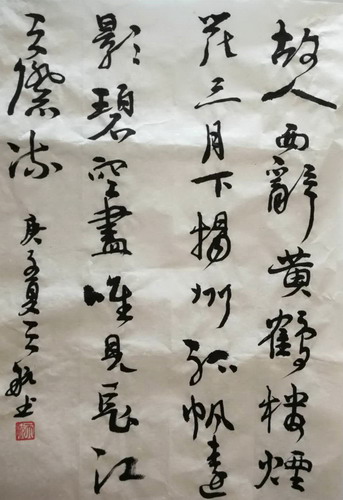 故人西辭黄鶴樓煙
花三月下揚州孤帆遠
影碧空盡唯見長江
天際流
庚子夏